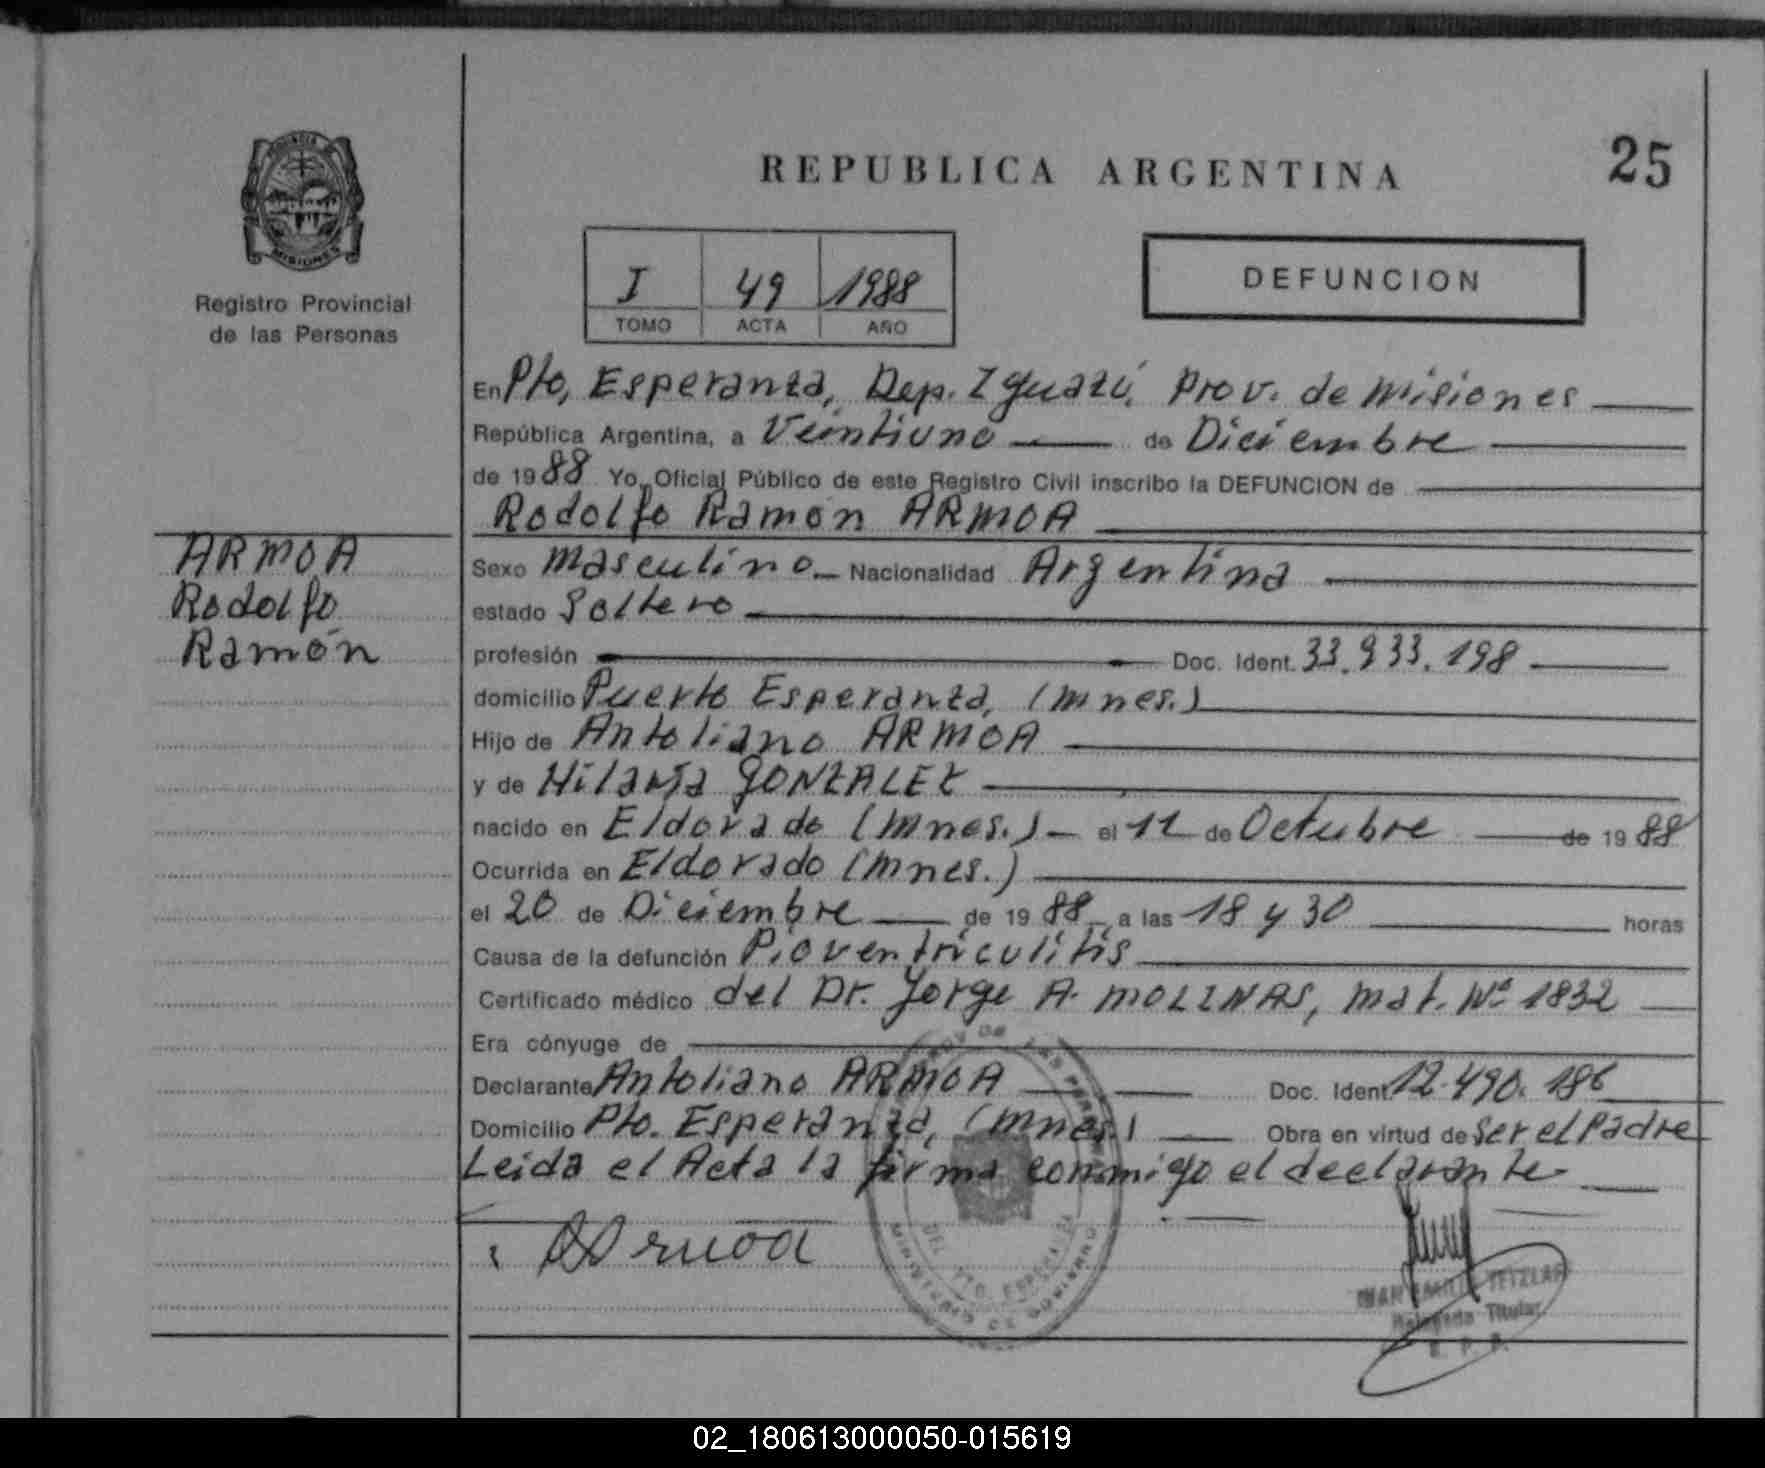 REPUBLICA ARGENTINA
25
PROVINCIA DE
MISIONES
Registro Provincial
de las Personas
I 49 1988
TOMO ACTA AÑO
DEFUNCION
En Pto, Esperanza, Dep. Iguazú, Prov. de Misiones
República Argentina, a Veintiuno de Diciembre
de 1988 Yo, Oficial Público de este Registro Civil inscribo la DEFUNCION de
Rodolfo Ramón ARMOA
ARMOA
Rodolfo
Ramón
Sexo Masculino Nacionalidad Argentina
estado Soltero
profesión Doc. Ident. 33.933.198
domicilio Puerto Esperanza, (Mnes.)
Hijo de Antoliano ARMOA
y de Hilaria GONZALEZ
nacido en Eldorado (Mnes.) el 11 de Octubre de 1988
Ocurrida en Eldorado (Mnes.)
el 20 de Diciembre de 1988 a las 18 y 30 horas
Causa de la defunción Pioventriculitis
Certificado médico del Dr. Jorge A. MOLINAS, Mat. Nº 1832
Era cónyuge de
Declarante Antoliano ARMOA Doc. Ident. 12.490.186
Domicilio Pto. Esperanza, (Mnes.) Obra en virtud de ser el Padre
Leida el Acta la firma conmigo el declarante
Armoa
DE LAS PERSON
DEL PTO. ESPERANZA
MINISTERIO DE GOBIERNO
Delegado Titular
R. P. P.
02_180613000050-015619